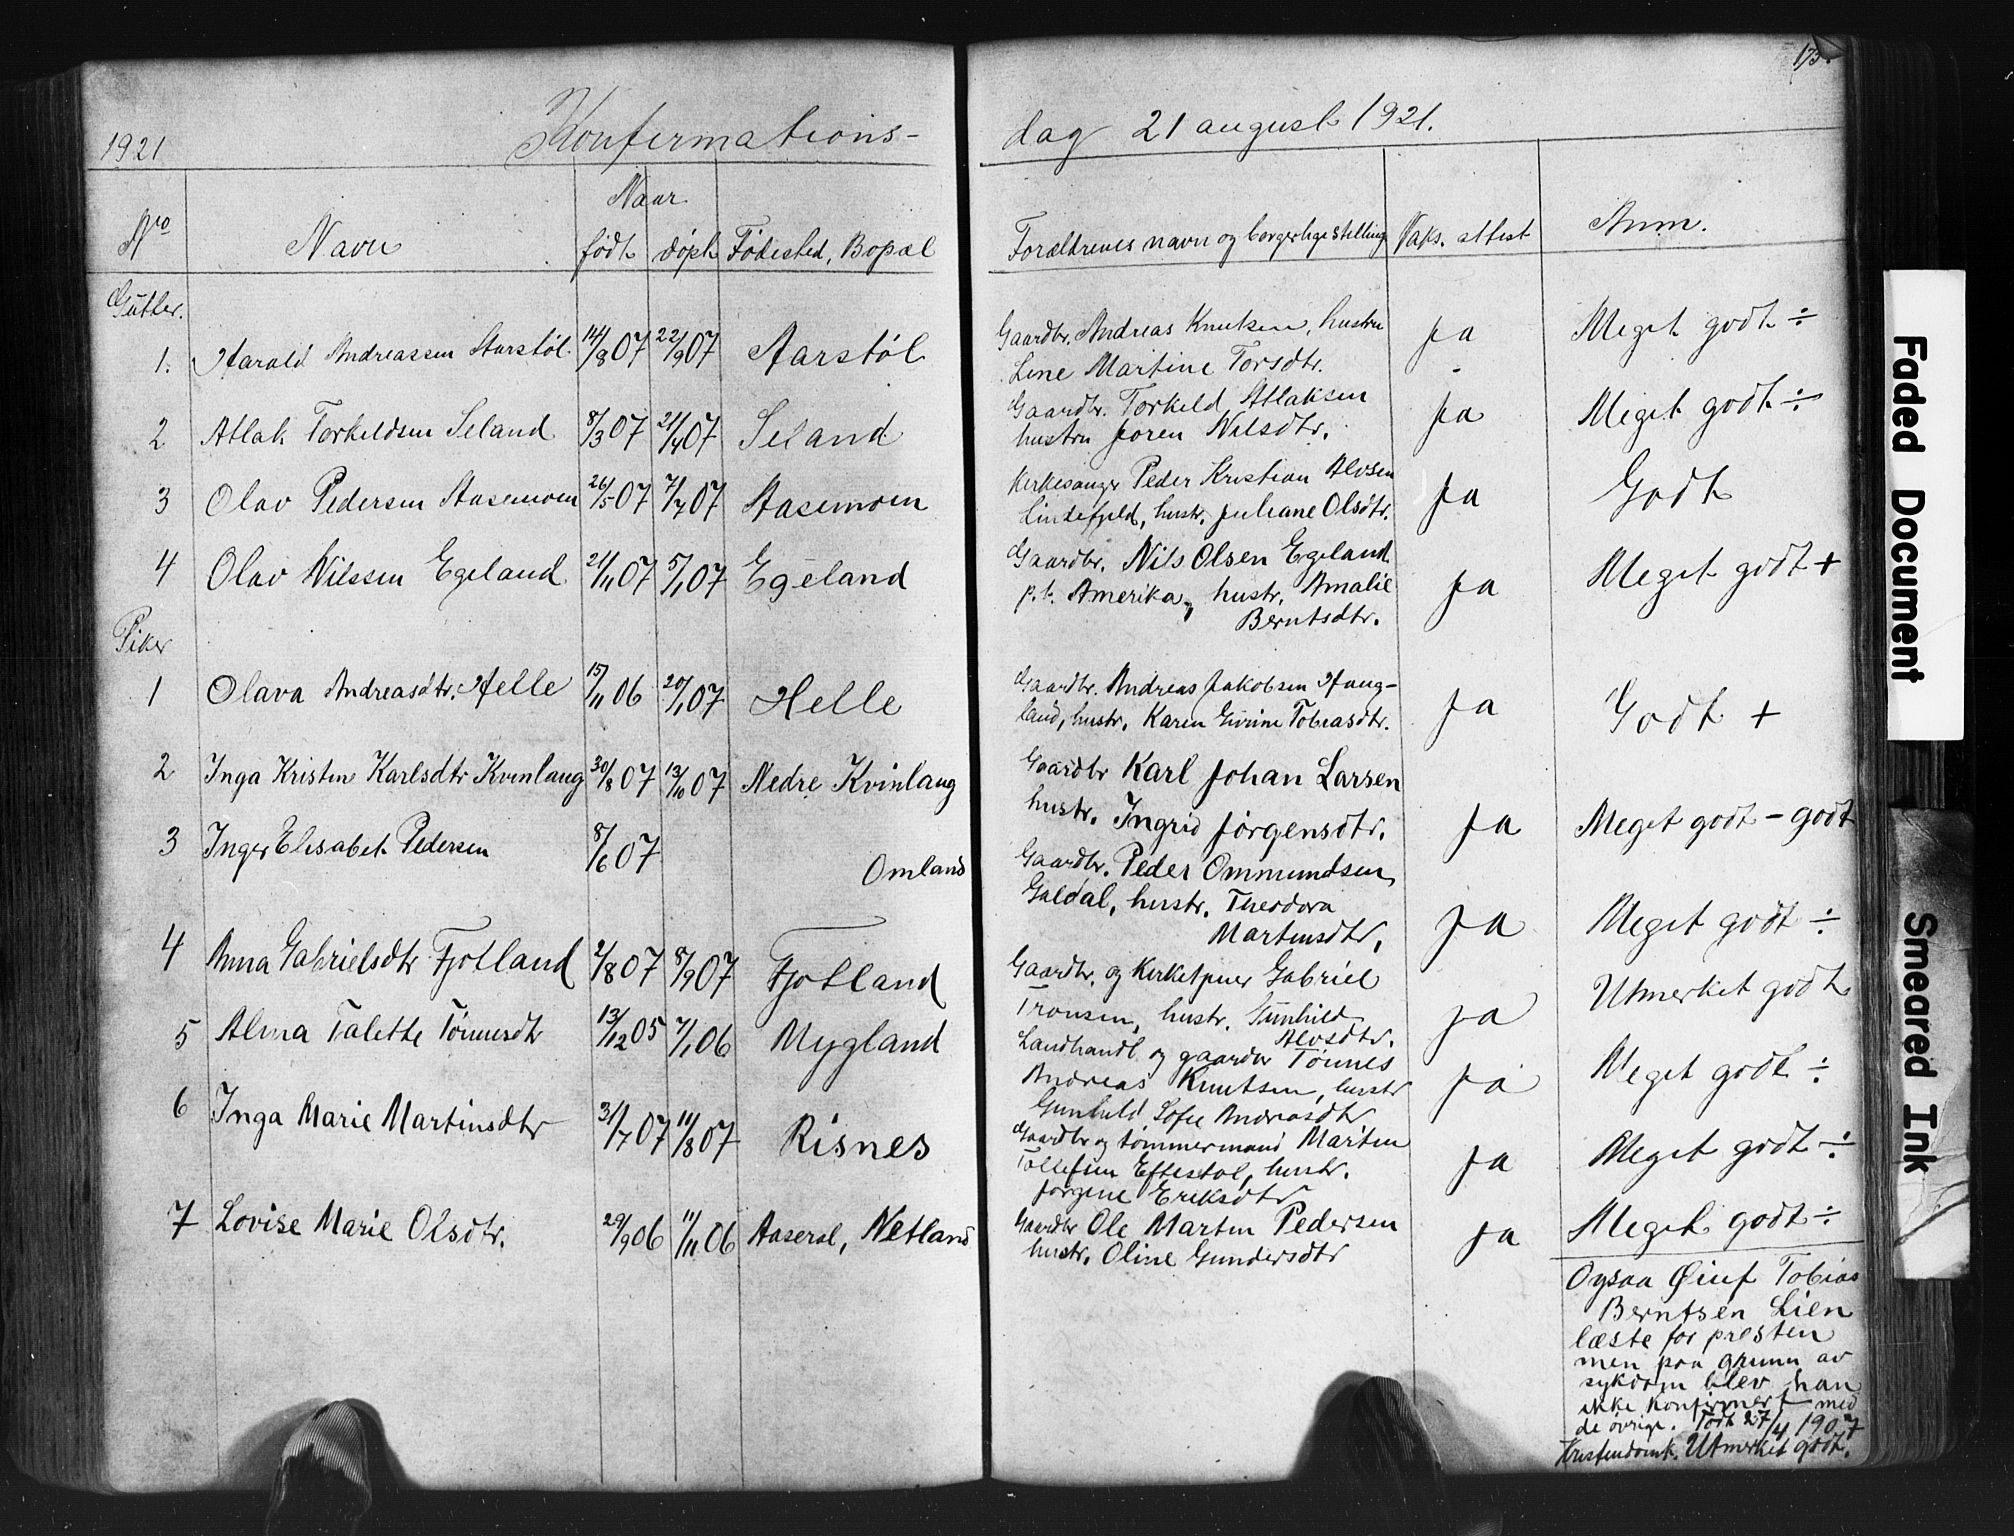 173.
1921 Konfirmations- dag 21 august 1921.
Naar
No Navn født døpt Fødested, Bopæl Forældrenes navn og borgerlige stilling Vaks. attest Anm.
Gutter.
1. Harald Andreassen Aarstøl 14/8 07 22/9 07 Aarstøl Gaardbr. Andreas Knutsen, hustru ja Meget godt ÷
Line Martine Torsdtr.
2 Atlak Torkeldsen Seland 8/3 07 21/4 07 Seland Gaardbr. Torkeld Atlaksen ja Meget godt ÷
hustru Joren Nilsdtr.
3 Olav Pedersen Aasemoen 26/5 07 7/7 07 Aasemoen Kirkesanger Peder Kristian Alvsen ja Godt
Lindefjeld, hustr. Juliane Olsdtr.
4 Olav Nilssen Egeland 21/11 07 5/1 07 Egeland Gaardbr. Nils Olsen Egeland ja Meget godt +
p.t. Amerika, hustr. Amalie
Berntsdtr.
Piker
1 Olava Andreasdtr. Helle 15/11 06 20/1 07 Helle Gaardbr. Andreas Jakobsen Haug- ja Godt +
land, hustr. Karen Tobiasdtr.
2 Inga Kristine Karlsdtr Kvinlaug 30/8 07 13/10 07 Nedre Kvinlaug Gaardbr Karl Johan Larsen
hustr. Ingrid Jørgensdtr. ja Meget godt - godt
3 Inger Elisabet Pedersen 8/6 07 Omland Gaardbr. Peder Ommundsen
Galdal, hustr. Theodora
Martinsdtr. ja Meget godt ÷
4 Anna Gabrielsdtr Fjotland 2/8 07 8/9 07 Fjotland Gaardbr. og Kirketjener Gabriel
Tronsen, hustr. Gunhild ja Utmerket godt
Alvsdtr.
5 Alma Talette Tønnesdtr 13/12 05 7/1 06 Mygland Landhandl. og gaardbr Tønnes
Andreas Knutsen, hustr ja Meget godt ÷
Gunhild Sofie Andreasdtr
6 Inga Marie Martinsdtr 31/7 07 11/8 07 Risnes Gaardbr og tømmermand Martin
Tollefsen Eftestøl, hustr. ja Meget godt ÷
Jørgine Eriksdtr
7 Lovise Marie Olsdtr. 29/9 06 11/11 06 Aaseral, Netland Gaardbr Ole Martin Pedersen ja Meget godt ÷
hustr. Oline Gundersdtr
Ogsaa Øiuf Tobias
Berntsen Lien
læste for presten
men paa grunn av
sykdom blev han
ikke konfirmert med
de øvrige. Født 27/4 1907
Kristendomsk. Utmerket godt.
Faded Document
Smeared Ink